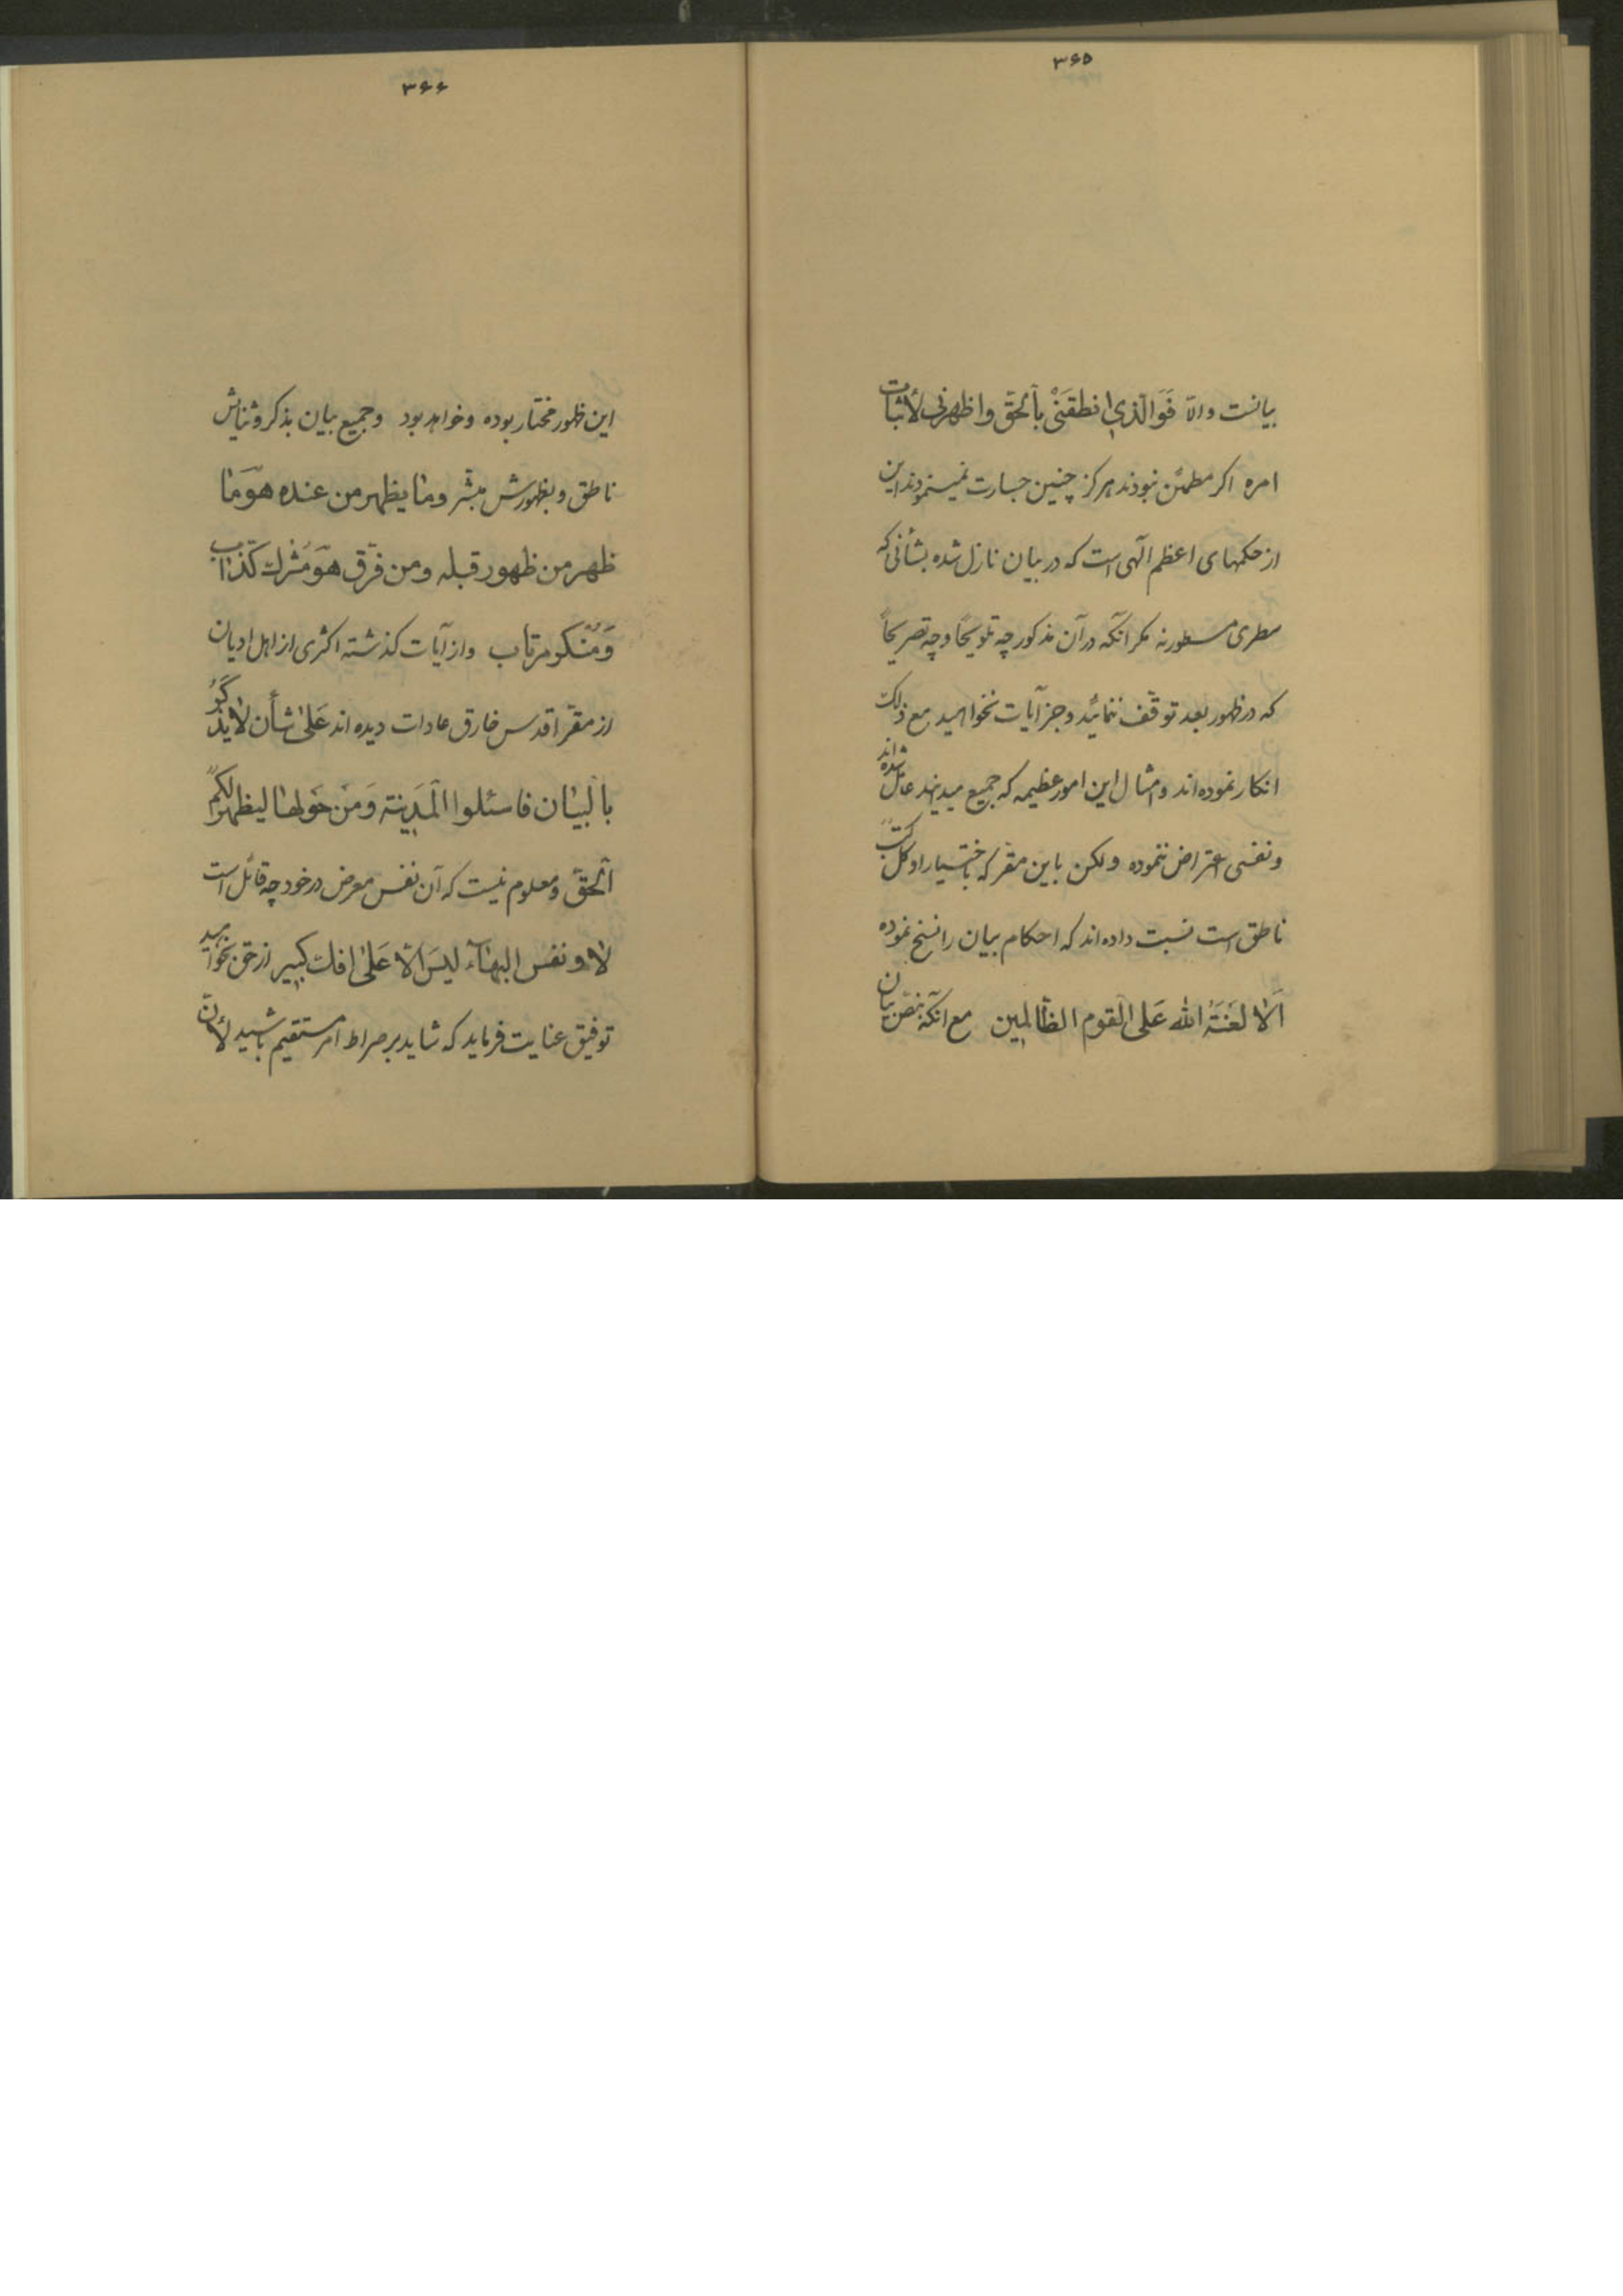 ۳۶۵
بیانست والّا فَوَالّذي انطقَنْی بالحقّ واظهرنی لأثبات
امره اکر مطمئن نبودند هرکز چنین جسارت نمینمودند این
از حکمهای اعظم الهی است که در بیان نازل شده بشأنی که
سطری مسطور نه مکر آنکه در آن مذکور چه تلویحًا و چه تصریحًا
که در ظهور بعد توقّف ننمائید و جز آیات نخواهید مع ذلک
انکار نموده‌اند و امثال این امور عظیمه که جمیع میدانند عامل شده‌اند
و نفسی اعتراض ننموده ولکن باین مقرّ که باختیار او کلّ کتب
ناطق است نسبت داده‌اند که احکام بیان را نسخ نموده
اَلا لعنَةُ الله عَلی القوم الظّالمین مع آنکه بنصّ بیان
۳۶۶
این ظهور مختار بوده و خواهد بود وجمیع بیان بذکر و ثنایش
ناطق و بظهورش مبشّر وما یظهر من عنده هوَ مَا
ظهر من ظهور قبله ومن فرّق هوَ مُشرك کذّاب
وَمُنکر مرتاب واز آیات کذشته اکثری از اهل ادیان
از مقرّ اقدس خارق عادات دیده‌اند عَلی شأن لا یذکَرُ
بالبیان فاسئلوا المَدینة وَمَن حَولها لیظهر لکم
الحقّ و معلوم نیست که آن نفس معرض در خود چه قائل است
لا و نفس البهاء لیسَ الّا عَلی افك کبیر از حق بخواهید
توفیق عنایت فرماید که شاید بر صراط امر مستقیم باشید لأنّ